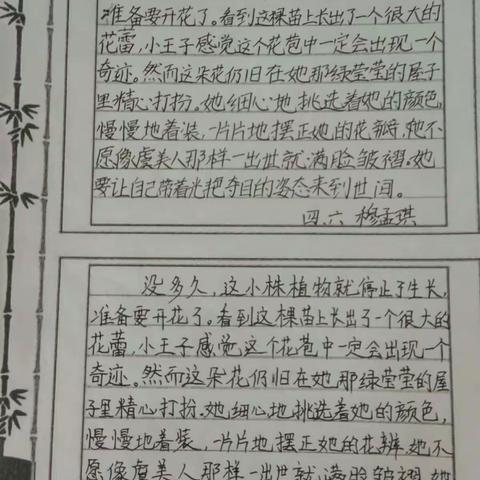 准备要开花了。看到这棵苗上长出了一个很大的
花蕾,小王子感觉这个花苞中一定会出现一个
奇迹。然而这朵花仍旧在她那绿莹莹的屋子
里精心打扮。她细心地挑选着她的颜色,
慢慢地着装,一片片地摆正她的花瓣,她不
愿像虞美人那样一出世就满脸皱褶。她
要让自己带着光把夺目的姿态来到世间。
四.六 穆孟琪
没多久,这小株植物就停止了生长,
准备要开花了。看到这棵苗上长出了一个很大的
花蕾,小王子感觉这个花苞中一定会出现一个
奇迹。然而这朵花仍旧在她那绿莹莹的屋
子里精心打扮。她细心地挑选着她的颜色,
慢慢地着装,一片片地摆正她的花瓣,她不
愿像虞美人那样一出世就满脸皱褶。她